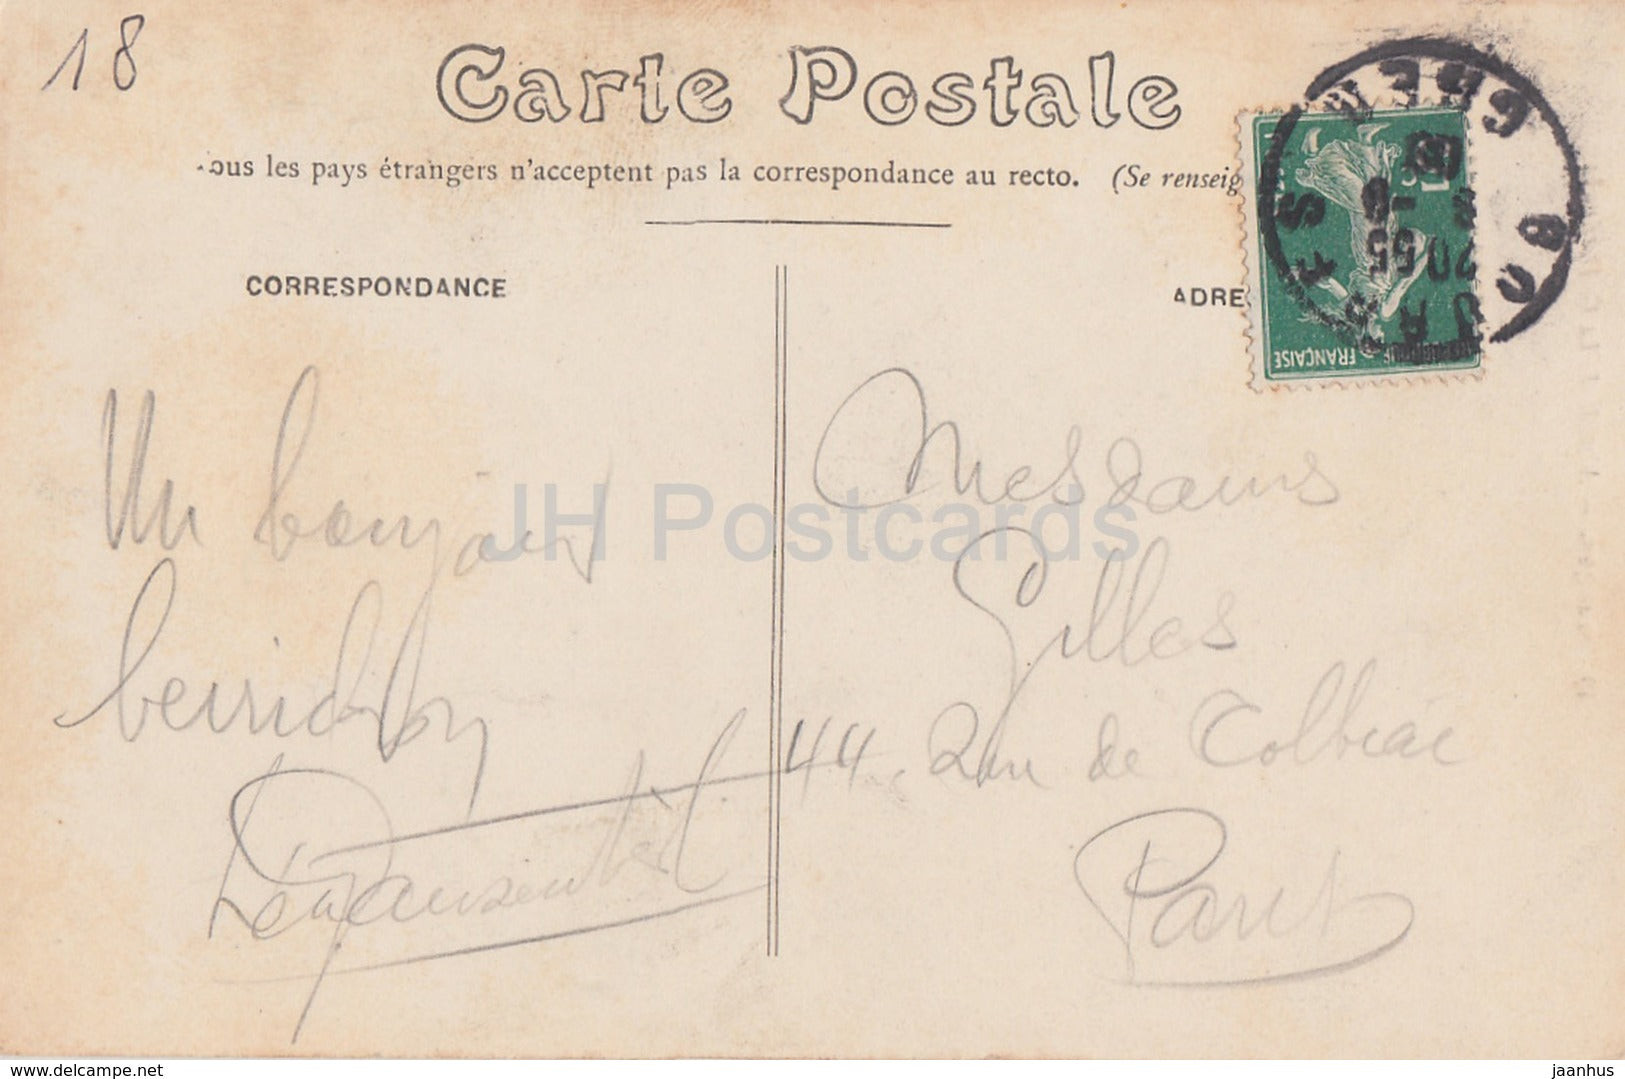 18
Carte Postale
ous les pays étrangers n'acceptent pas la correspondance au recto. (Se renseig
CORRESPONDANCE
ADRE
FRANÇAISE
20 55
Un bonjour
Mesdames
Gilles
44 Rue de Tolbiac
Paris
JH Postcards
www.delcampe.net
jaanhus